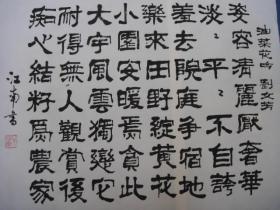 油菜花吟 劉
姿容清麗厭奢華
淡々平々不自誇
羞去院庭爭宿地
樂來田野綻黃花
小園安暖焉貪此
大宇風雲獨戀它
耐得無人觀賞後
痴心結籽爲農家
江南書